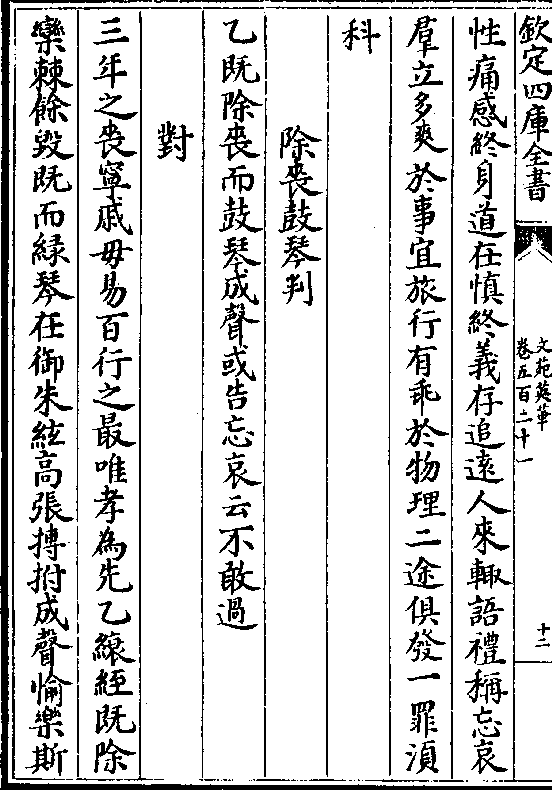 欽定四庫全書
文苑英華
卷五百二十一
十二
性痛感終身道在慎終義存追遠人來輙語禮稱忘哀
羣立多爽於事宜旅行有乖於物理二途俱發一罪湏
科
除喪鼓琴判
乙既除喪而鼓琴成聲或告忘哀云不敢過
對
三年之喪寧戚毋易百行之最唯孝為先乙縗絰既除
欒棘餘毀既而緑琴在御朱絃高張摶拊成聲愉樂斯